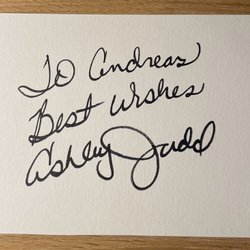 To Andreas
Best Wishes
Ashley Judd